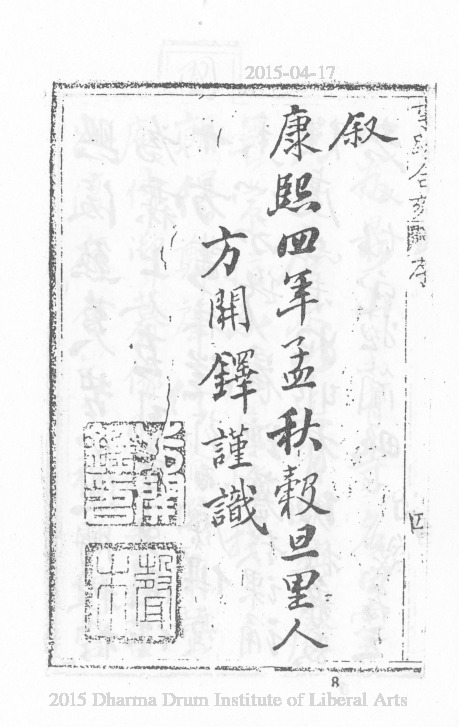 2015-04-17
叙
康熙四年孟秋穀旦里人
方開鐸謹識
方開
鐸印
四
8
2015 Dharma Drum Institute of Liberal Arts